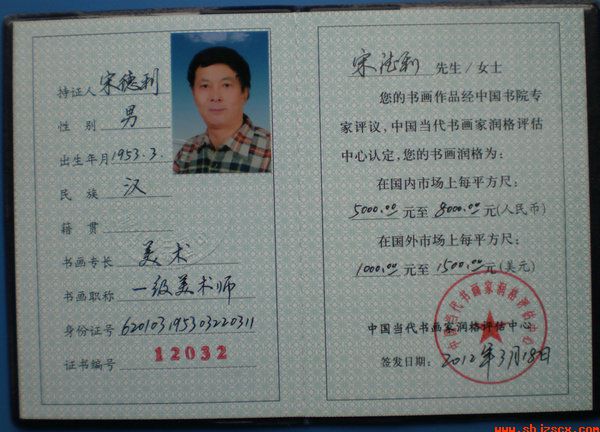 持证人 宋德利
性 别 男
出生年月 1953.3.
民 族 汉
籍 贯
书画专长 美术
书画职称 一级美术师
身份证号 620103195303220311
证书编号 12032
宋德利 先生/女士
您的书画作品经中国书院专
家评议，中国当代书画家润格评估
中心认定，您的书画润格为：
在国内市场上每平方尺：
5000.00 元至 8000.00 元(人民币)
在国外市场上每平方尺：
1000.00 元至 1500.00 元(美元)
中国当代书画家润格评估中心
中国当代书画家润格评估中心
签发日期：2012年3月18日
www.sbjzscx.com